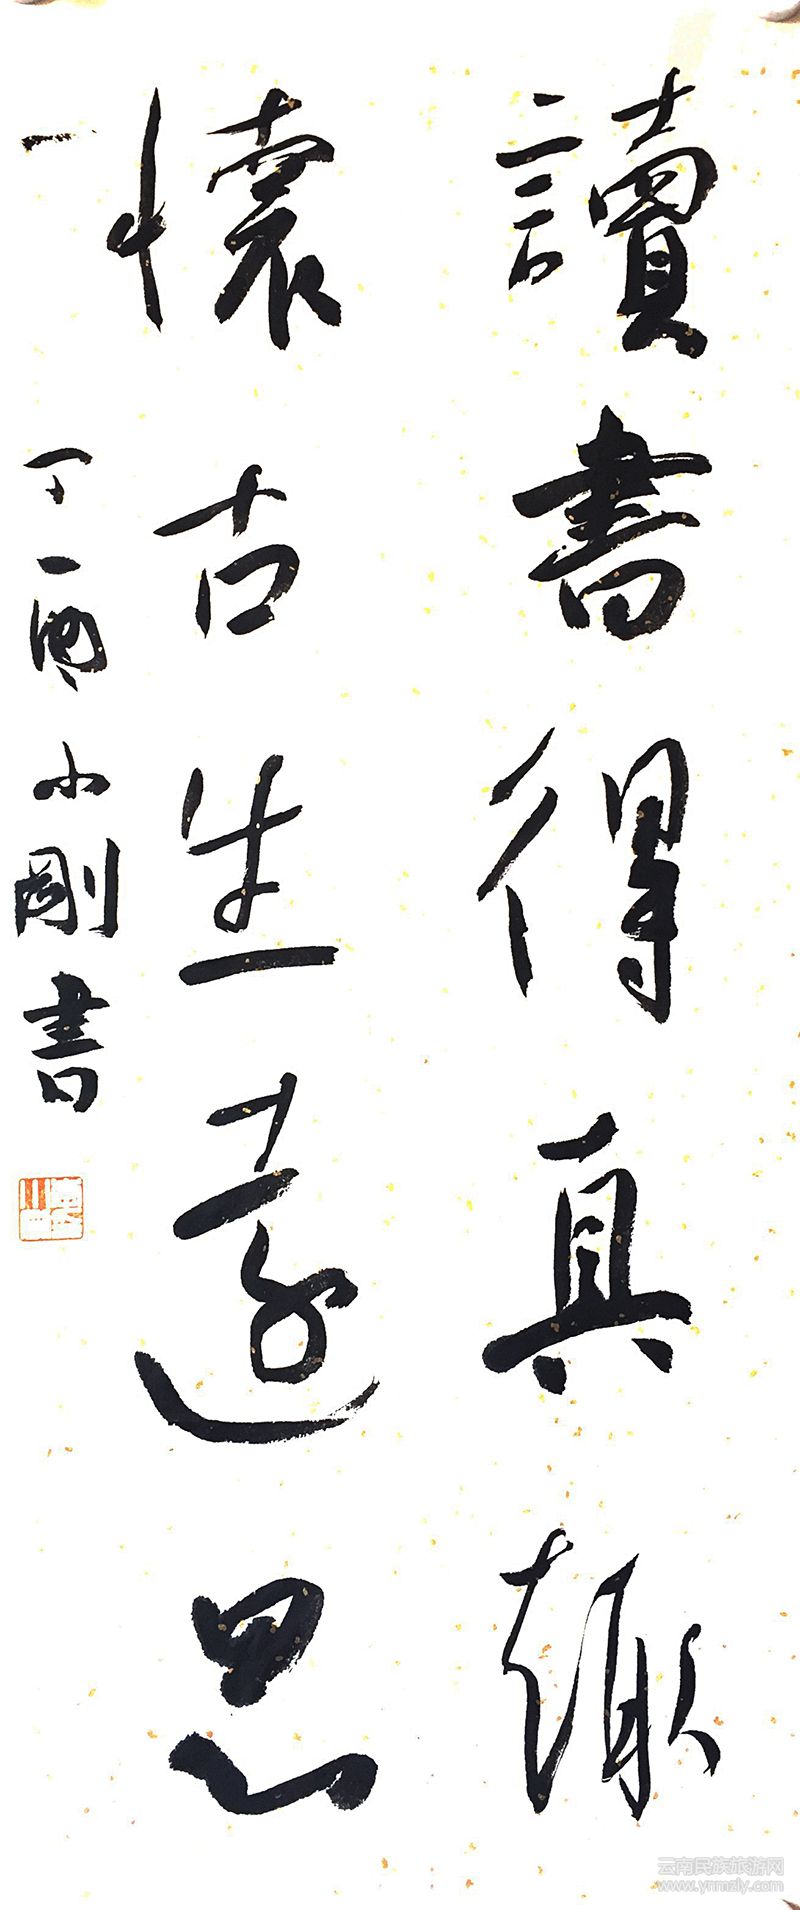 讀書得真趣
懷古生遠思
丁酉小剛書
云南民族旅游网
www.ynmzly.com